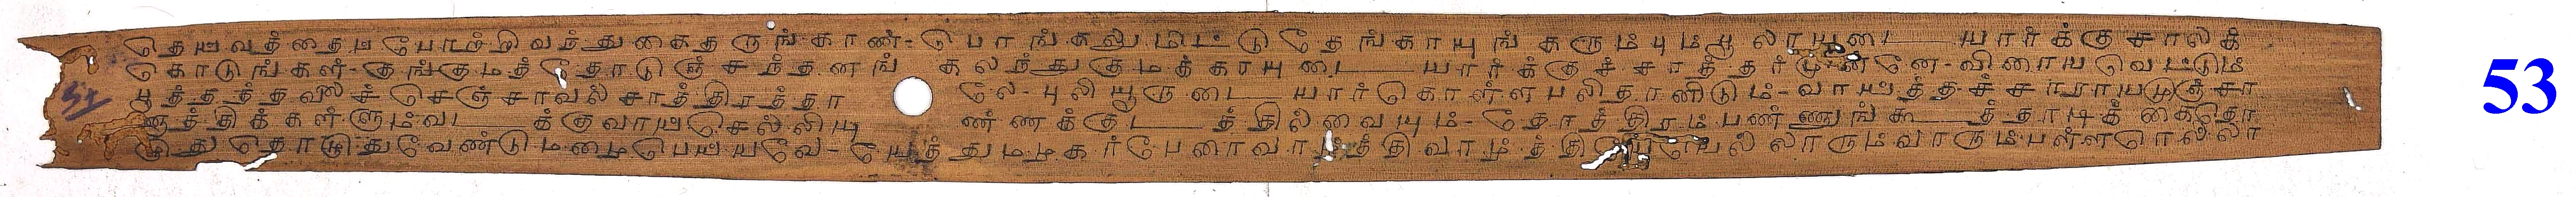 தெய்வத்தைப் போற்றிவந்து கைதருங் காண்- பொங்கலுமிட்டு தேங்காயுங் கரும்பும் பூலாயுடையார்க்கு சாலக்
கொடுங்கள்- குங்குமத்தோடுஞ் சந்தனங் கலந்து குமக்காயுடையார்க்குச் சாத்தர் முன்னே- விளைய வெட்டும்
புத்தத்தவிலச் செஞ்சாவல் சாத்திரத்தா லே- புலியூருடையார் கொள்ள பலிதானிடும்- வாய்த்த சாராயமுஞ் சா
ளுத்திக்கள்ளும் வடக்குவாய் செல்லியு ண்ணக் குடத்தில் வையும்- தோத்திரம் பண்ணுங் கூத்தாடிக் கைதொ
டுது தொடுது வேண்டும் மழை பெய்யவே- யேத்தும் மழகர் பேரைவாழ்த்தி வாழ்த்தி யெல்லாரும் வாரும் பள்ளரெல்லா
53